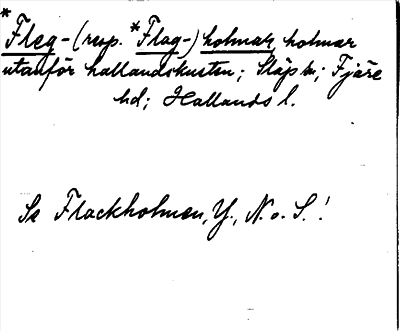 *Fleg- (resp. *Flag-) holmar, holmar
utanför hallandskusten; Släp sn; Fjäre
hd; Hallands l.
Se Flackholmen, Y., N. o. S.!